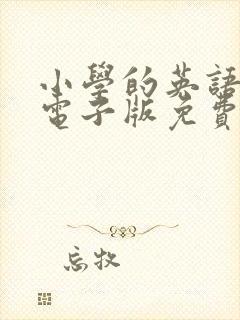 小學的英語
電子版免費
忘牧